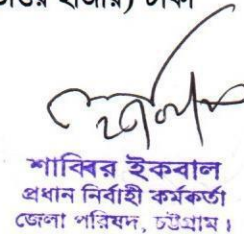 হাজার) টাকা
শাব্বির ইকবাল
প্রধান নির্বাহী কর্মকর্তা
জেলা পরিষদ, চট্টগ্রাম।